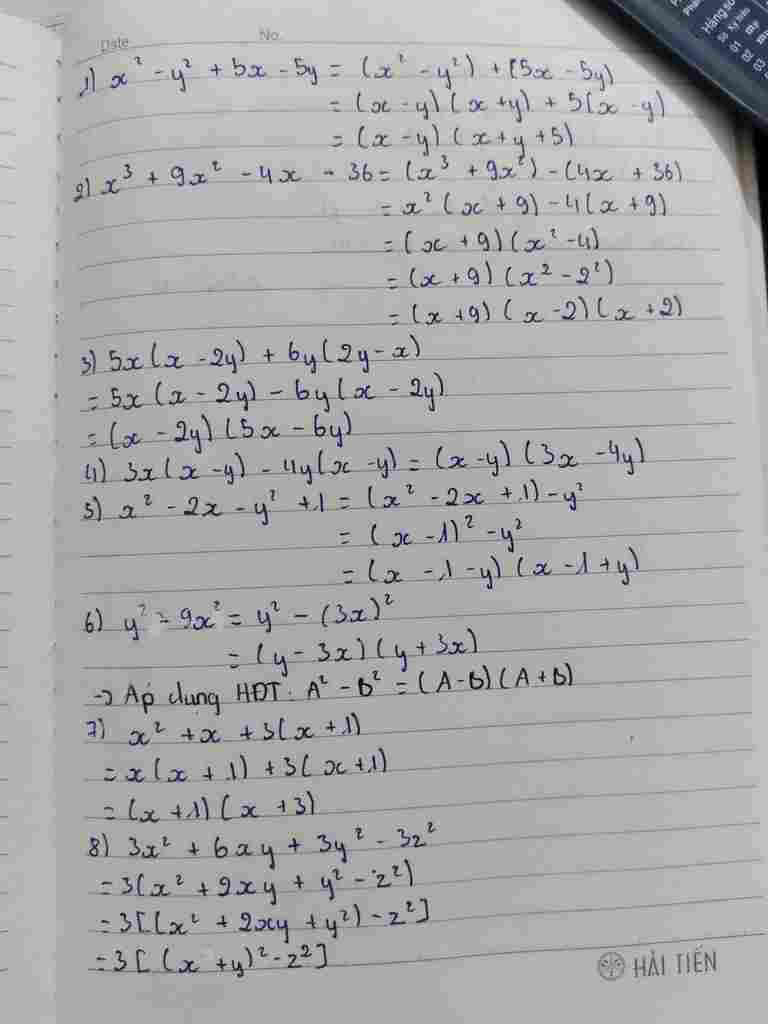 Date No.
1) x² - y² + 5x - 5y = (x² - y²) + (5x - 5y)
= (x - y) (x + y) + 5(x - y)
= (x - y) (x + y + 5)
2) x³ + 9x² - 4x - 36 = (x³ + 9x²) - (4x + 36)
= x² (x + 9) - 4(x + 9)
= (x + 9) (x² - 4)
= (x + 9) (x² - 2²)
= (x + 9) (x - 2) (x + 2)
3) 5x(x - 2y) + 6y(2y - x)
= 5x (x - 2y) - 6y (x - 2y)
= (x - 2y) (5x - 6y)
4) 3x(x - y) - 4y(x - y) = (x - y) (3x - 4y)
5) x² - 2x - y² + 1 = (x² - 2x + 1) - y²
= (x - 1)² - y²
= (x - 1 - y) (x - 1 + y)
6) y² - 9x² = y² - (3x)²
= (y - 3x) (y + 3x)
→ Áp dụng HĐT: A² - B² = (A - B) (A + B)
7) x² + x + 3(x + 1)
= x(x + 1) + 3(x + 1)
= (x + 1) (x + 3)
8) 3x² + 6xy + 3y² - 3z²
= 3(x² + 2xy + y² - z²)
= 3[(x² + 2xy + y²) - z²]
= 3[(x + y)² - z²]
HẢI TIẾN